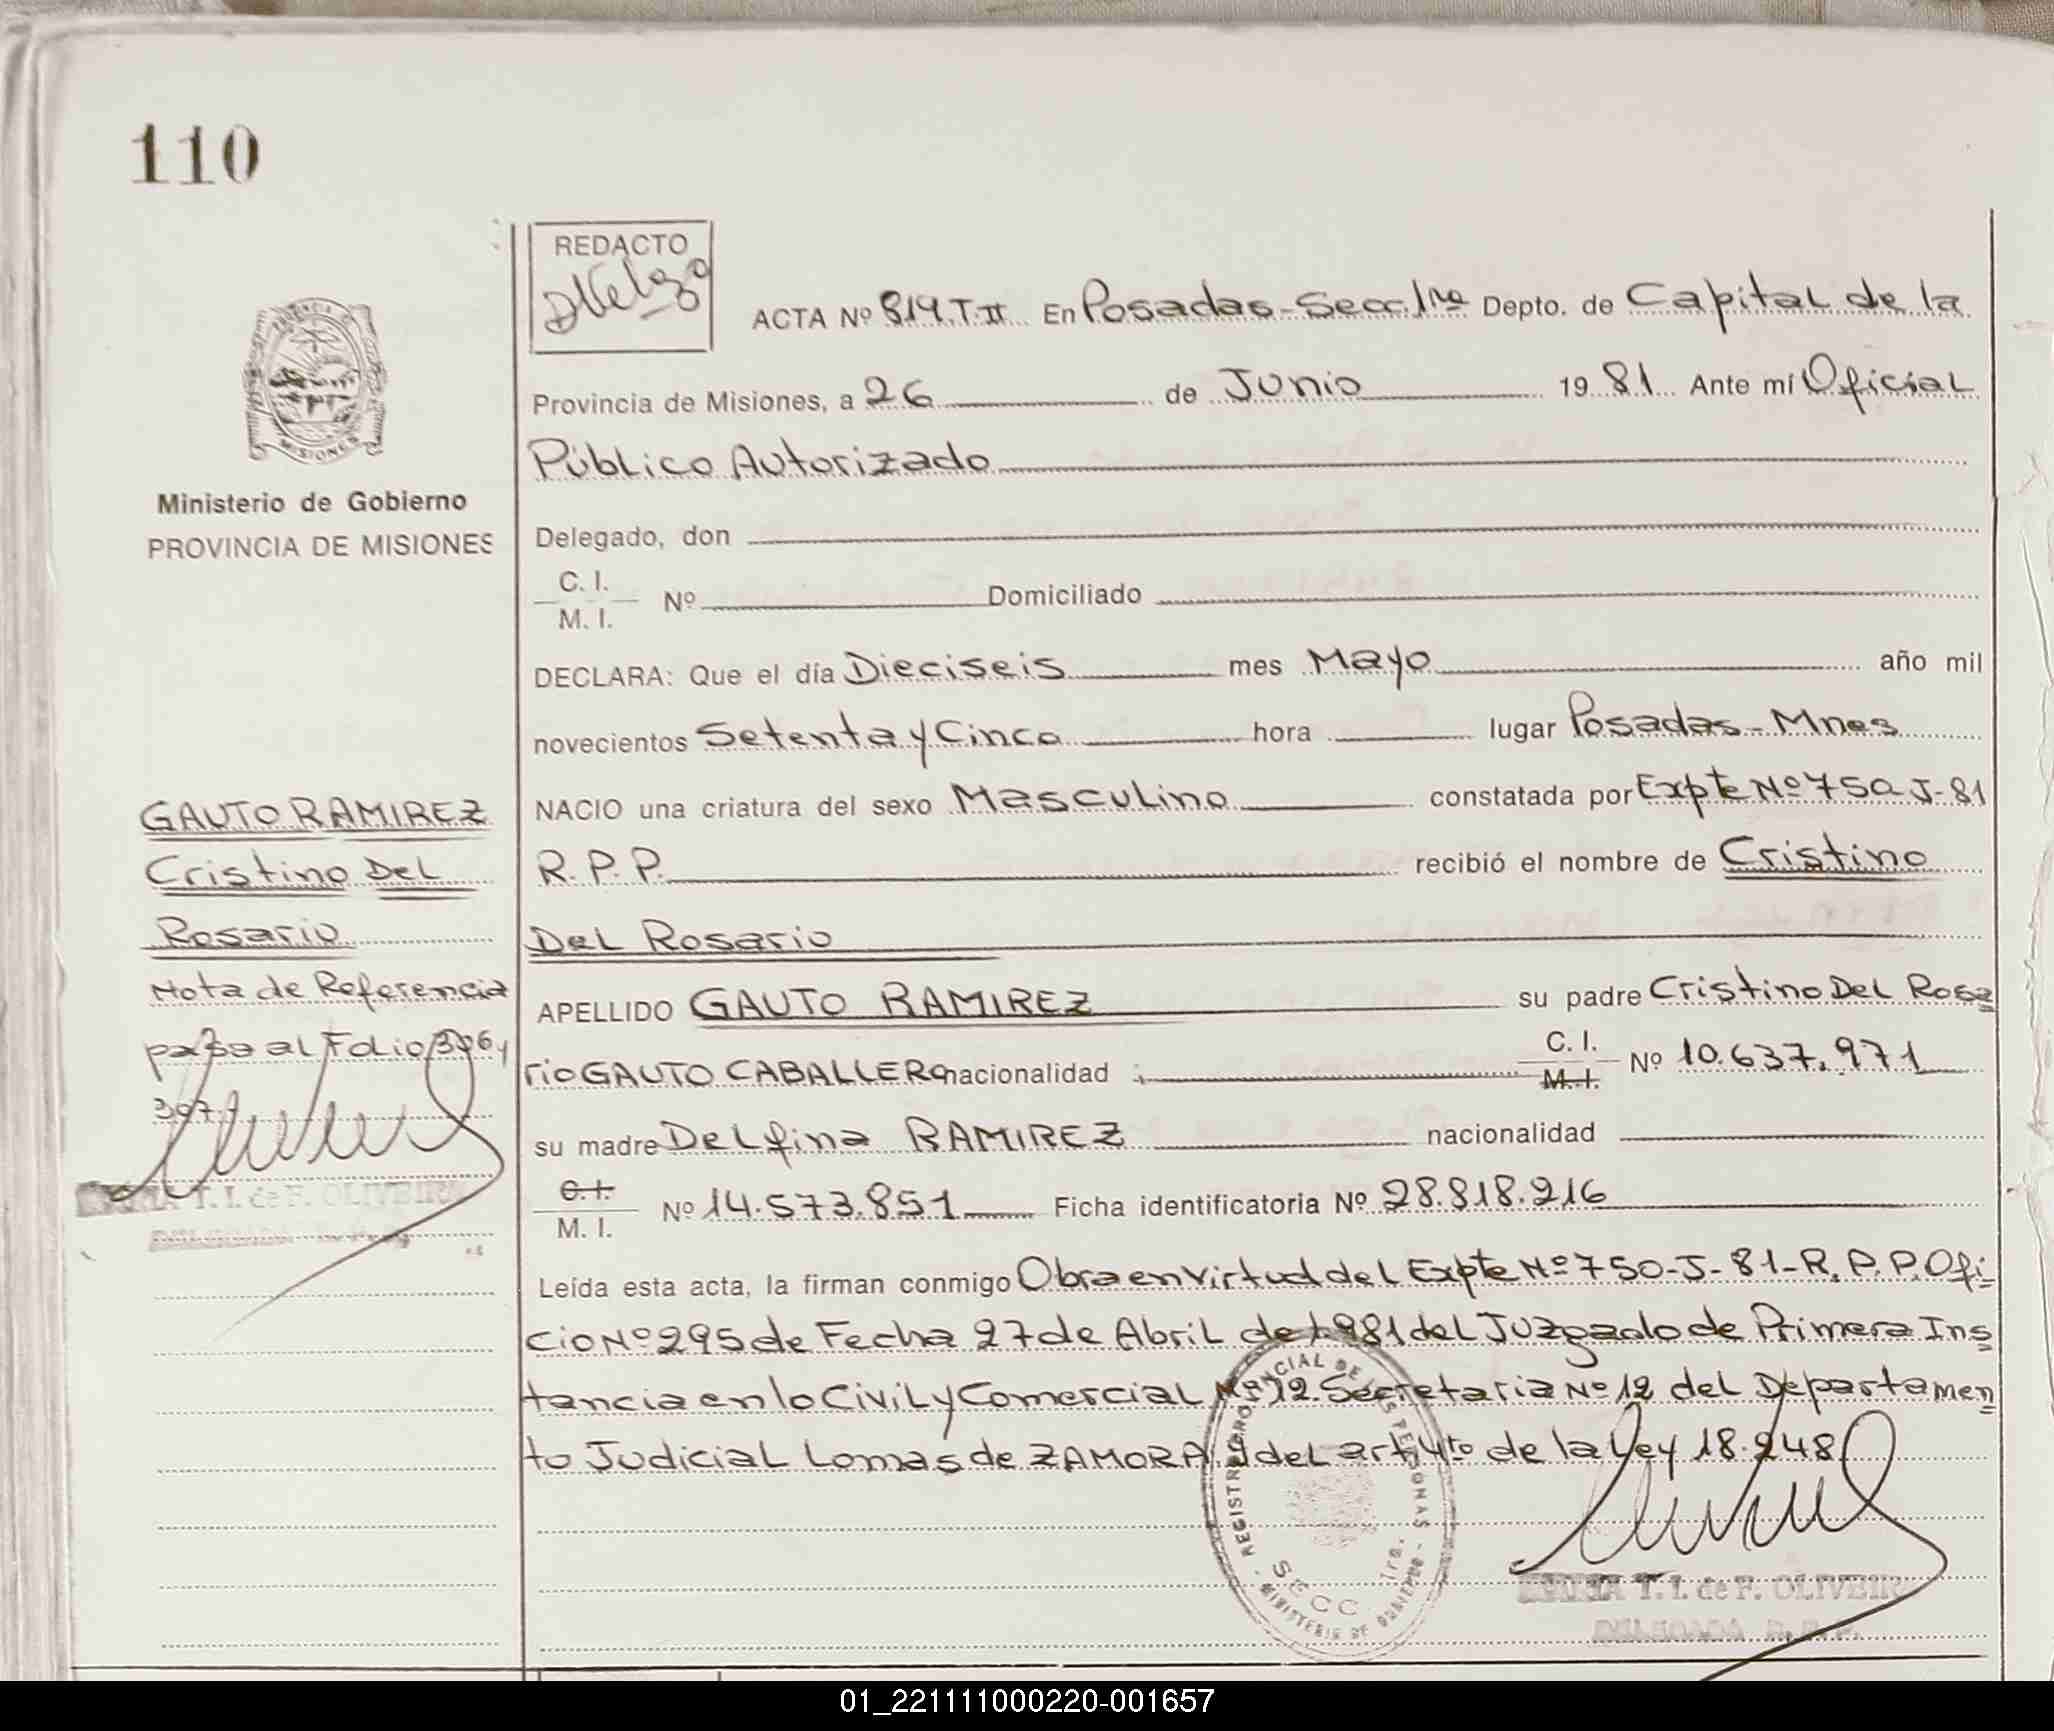 110
REDACTO
ACTA Nº 819.T.II En Posadas-Secc.1ra Depto. de Capital de la
Provincia de Misiones, a 26 de Junio 19 81 Ante mí Oficial
Público Autorizado
Delegado, don
C. I.
M. I. Nº Domiciliado
DECLARA: Que el día Dieciseis mes Mayo año mil
novecientos Setenta y Cinco hora lugar Posadas-Mnes
NACIO una criatura del sexo Masculino constatada por Expte Nº 750-J-81
R.P.P. recibió el nombre de Cristino
Del Rosario
APELLIDO GAUTO RAMIREZ su padre Cristino Del Rosa
rio GAUTO CABALLERO nacionalidad C. I. M. I. Nº 10.637.971
su madre Delfina RAMIREZ nacionalidad
C. I.
M. I. Nº 14.573.851 Ficha identificatoria Nº 28.818.216
Leída esta acta, la firman conmigo Obra en virtud del Expte Nº 750-J-81-R.P.P. Ofi
cio Nº 295 de Fecha 27 de Abril de 1.981 del Juzgado de Primera Ins
tancia en lo Civil y Comercial Nº 12 Secretaria Nº 12 del Departamen
to Judicial Lomas de ZAMORA y del art 4to de la Ley 18.248
REGISTRO PROVINCIAL DE LAS PERSONAS
MINISTERIO DE GOBIERNO
SECC. 1ra.
MARIA T. I. de F. OLIVEIRA
DELEGADA R. P. P.
PROVINCIA DE MISIONES
Ministerio de Gobierno
PROVINCIA DE MISIONES
GAUTO RAMIREZ
Cristino Del
Rosario
Nota de Referencia
pasa al Folio 396 y
397
MARIA T. I. de F. OLIVEIRA
DELEGADA R. P. P.
01_221111000220-001657